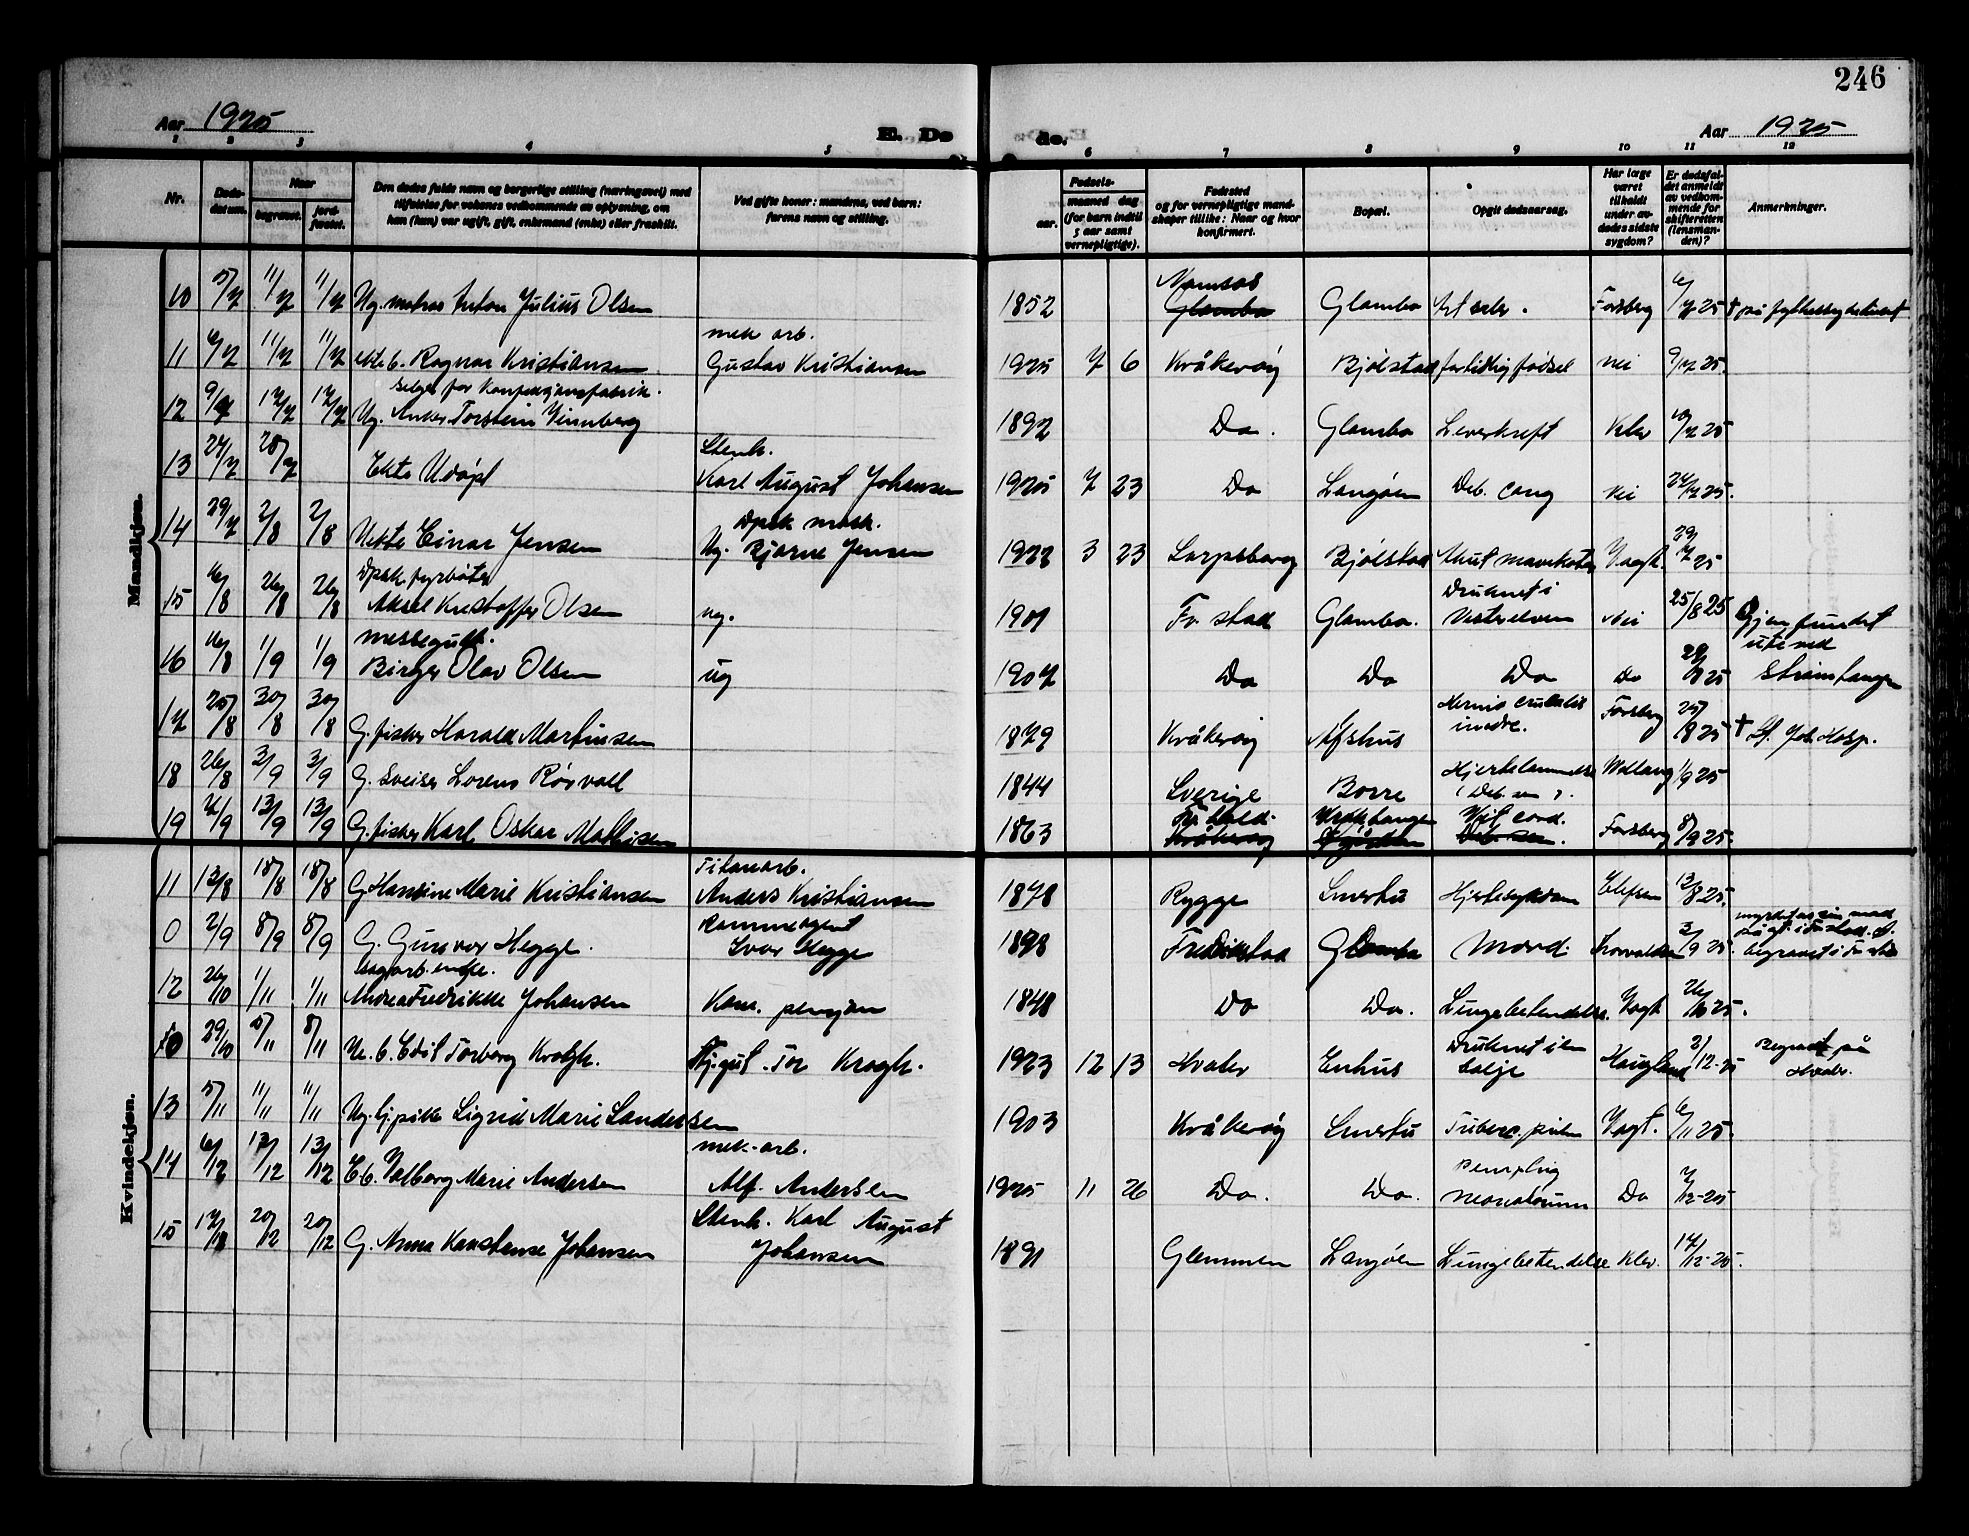 246
Aar 1925
E. Dø
de.
Aar 1925
1 2 3 4 5 6 7 8 9 10 11 12
Nr.
Døds-
datum.
Naar
begravet.
jord-
fæstet.
Den dødes fulde navn og borgerlige stilling (næringsvei) med
tilføielse for voksnes vedkommende av oplysning, om
han (hun) var ugift, gift, enkemand (enke) eller fraskilt.
Ved gifte koner: mandens, ved barn:
farens navn og stilling.
Fødsels-
aar.
maaned dag
(for barn indtil
5 aar samt
vernepligtige).
Fødested
og for vernepligtige mand-
skaper tillike: Naar og hvor
konfirmert.
Bopæl.
Opgit dødsaarsag.
Har læge
været
tilkaldt
under av-
dødes sidste
sygdom?
Er dødsfal-
det anmeldt
av vedkom-
mende for
skifteretten
(lensman-
den)?
Anmerkninger.
Mandkjøn.
10 5/7 11/7 11/7 Ug. matros Anton Julius Olsen 1852 Namsos Glombo Glombo Forsberg 6/7 25
11 6/7 11/7 11/7 ekte b. Ragnar Kristiansen mek arb. Gustav Kristiansen 1925 7 6 Kråkerøy Bjølstad for tidlig fødsel nei 9/7 25.
12 9/7 12/7 12/7 selger for Konfeksjonsfabrik. Ug. Anker Torstein Vinnberg 1892 Do. Glombo Leverkreft Klev 10/7 25
13 24/7 28/7 Ekte Udøpt Stenh. Karl August Johansen 1925 7 23 Do Langøen Deb. cong nei 24/7 25.
14 29/7 2/8 2/8 Uekte Einar Jensen Dpsk mask. Ug. Bjarne Jensen 1922 3 23 Sarpsborg Bjølstad Vogt. 29/7 25
15 16/8 26/8 26/8 Dpsk fyrbøter Aksel Kristoffer Olsen ug. 1901 Fr. stad Glombo. Druknet i Vesterelven Nei 25/8 25 Gjenfundet
16 16/8 1/9 1/9 messegutt. Birger Olav Olsen ug 1907 Do Do Do Do 25 ute ved Strømtangen
17 25/8 30/8 30/8 G. fisker Harald Martinsen 1879 Kråkerøy Afshus Forsberg 25/8 25 † St. Jos. Hosp.
18 26/8 3/9 3/9 G. Sveiser Lorens Rósvall 1844 Sverige Borre Hjertelammelse (Deb. sen). 1/9 25
19 6/9 13/9 13/9 G. fisker Karl Oskar Mathisen 1863 Kråkerøy Vit. cord. Forsberg 8/9 25.
Kvindekjøn.
11 13/8 18/8 18/8 G. Hansine Marie Kristiansen Titanarb. Anders Kristiansen 1878 Rygge Smertu Hjertesykdom Elefsen 13/8 25.
0 2/9 8/9 8/9 G. Gunvor Hegge. Ivar Hegge 1898 Fredrikstad Glombo Mord. Thorvaldsen 3/9 25. begravet i Fr stad
12 26/10 1/11 1/11 sagarb. enke. Andrea Fredrikke Johansen Kom. pensjon 1848 Do Do. Lungebetendelse. Vogt 26/10 25.
0 29/10 5/11 8/11 Ue. b. Edit Torborg Krogh. Tor Krogh. 1923 12 13 Hvaler Enhus Druknet i en Haugland 2/12-25 Begravet på Hvaler.
13 5/11 11/11 11/11 Ug. tj. pike Sigrid Marie Sandersen 1903 Kråkerøy Smertu Tuberc. pulm Vogt. 6/11 25.
14 6/12 13/12 13/12 E. b. Valborg Marie Andersen mek. arb. Alf. Andersen 1925 11 26 Do. Do. Pemphig neonatorum Do 7/12-25
15 17/11 20/12 20/12 G. Anna Konstanse Johansen Stenh. Karl August Johansen 1891 Glemmen Langøen Lungebetendelse Klev. 17/12-25.